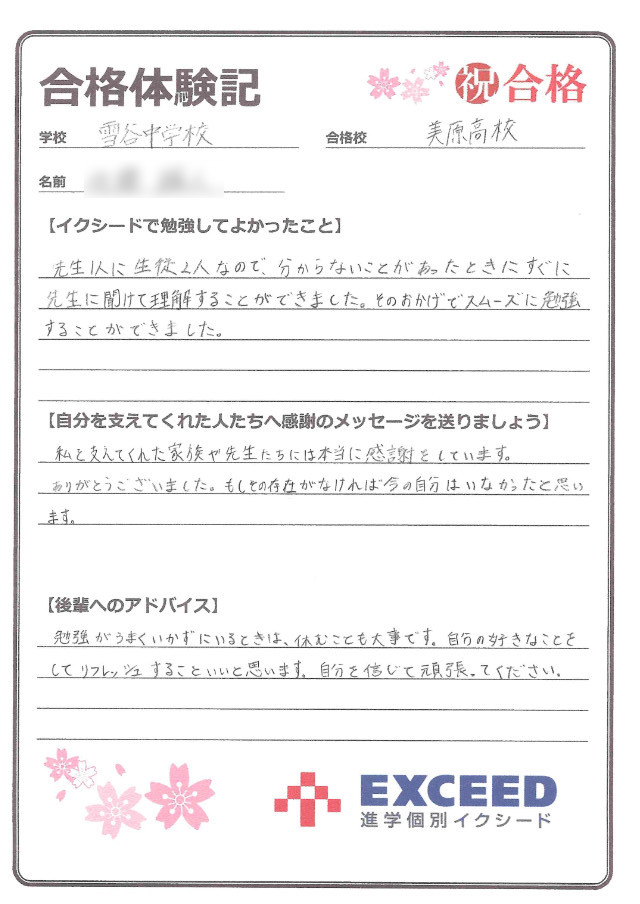 合格体験記
祝合格
学校 雪谷中学校
合格校 美原高校
名前
【イクシードで勉強してよかったこと】
先生1人に生徒2人なので、分からないことがあったときにすぐに
先生に聞けて理解することができました。そのおかげでスムーズに勉強
することができました。
【自分を支えてくれた人たちへ感謝のメッセージを送りましょう】
私を支えてくれた家族や先生たちには本当に感謝をしています。
ありがとうございました。もしその存在がなければ今の自分はいなかったと思い
ます。
【後輩へのアドバイス】
勉強がうまくいかずにいるときは、休むことも大事です。自分の好きなことを
してリフレッシュすることいいと思います。自分を信じて頑張ってください。
EXCEED
進学個別イクシード